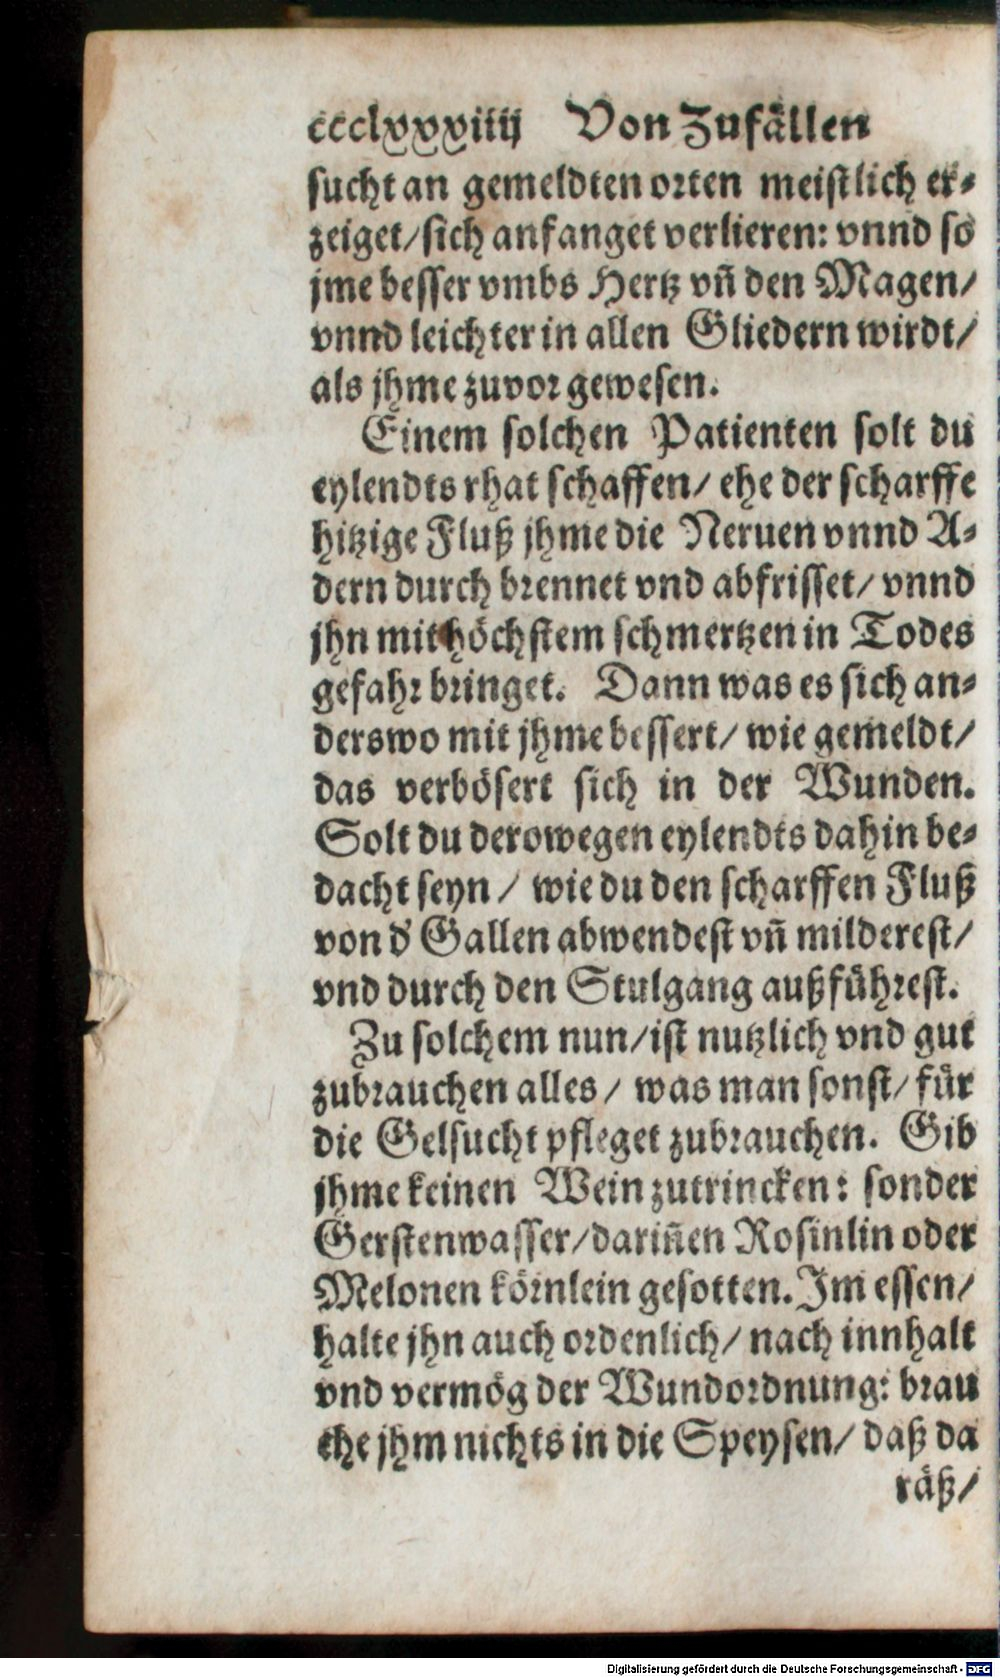 ccclxxxiiij Von Zufällen
sucht an gemeldten orten meistlich er-
zeiget/ sich anfanget verlieren: vnnd so
jme besser vmbs Hertz vñ den Magen/
vnnd leichter in allen Gliedern wirdt/
als jhme zuvor gewesen.
Einem solchen Patienten solt du
eylendts rhat schaffen/ ehe der scharffe
hitzige Fluß jhme die Neruen vnnd A-
dern durch brennet vnd abfrisset/ vnnd
jhn mit höchstem schmertzen in Todes
gefahr bringet. Dann was es sich an-
derswo mit jhme bessert/ wie gemeldt/
das verbösert sich in der Wunden.
Solt du derowegen eylendts dahin be-
dacht seyn/ wie du den scharffen Fluß
von d' Gallen abwendest vñ milderest/
vnd durch den Stulgang außführest.
Zu solchem nun/ ist nutzlich vnd gut
zubrauchen alles/ was man sonst/ für
die Gelsucht pfleget zubrauchen. Gib
jhme keinen Wein zutrincken: sonder
Gerstenwasser/ dariñen Rosinlin oder
Melonen körnlein gesotten. Im essen/
halte jhn auch ordenlich/ nach innhalt
vnd vermög der Wundordnung: brau
che jhm nichts in die Speysen/ daß da
räß/
Digitalisierung gefördert durch die Deutsche Forschungsgemeinschaft - DFG